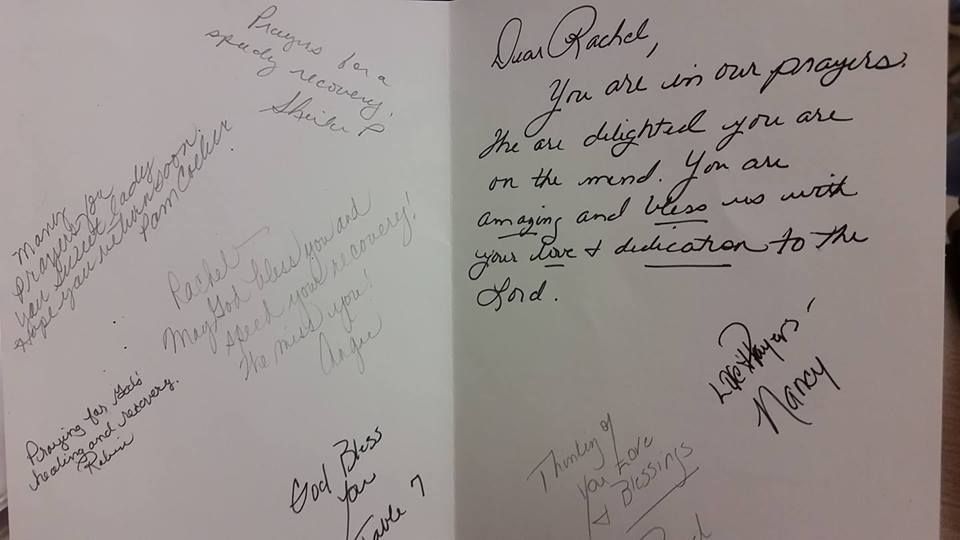 Prayers for a
speedy recovery!
Sheila P
Many
prayers for
you sweet lady.
Hope you return soon.
Pam Collier
Rachel
May God bless you and
speed your recovery!
We miss you!
Angie
Praying for God's
healing and recovery.
Robin
God Bless
you
Table 7
Dear Rachel,
You are in our prayers.
We are delighted you are
on the mend. You are
amazing and bless us with
your love & dedication to the
Lord.
Love & Prayers -
Nancy
Thinking of
you Love
& Blessings